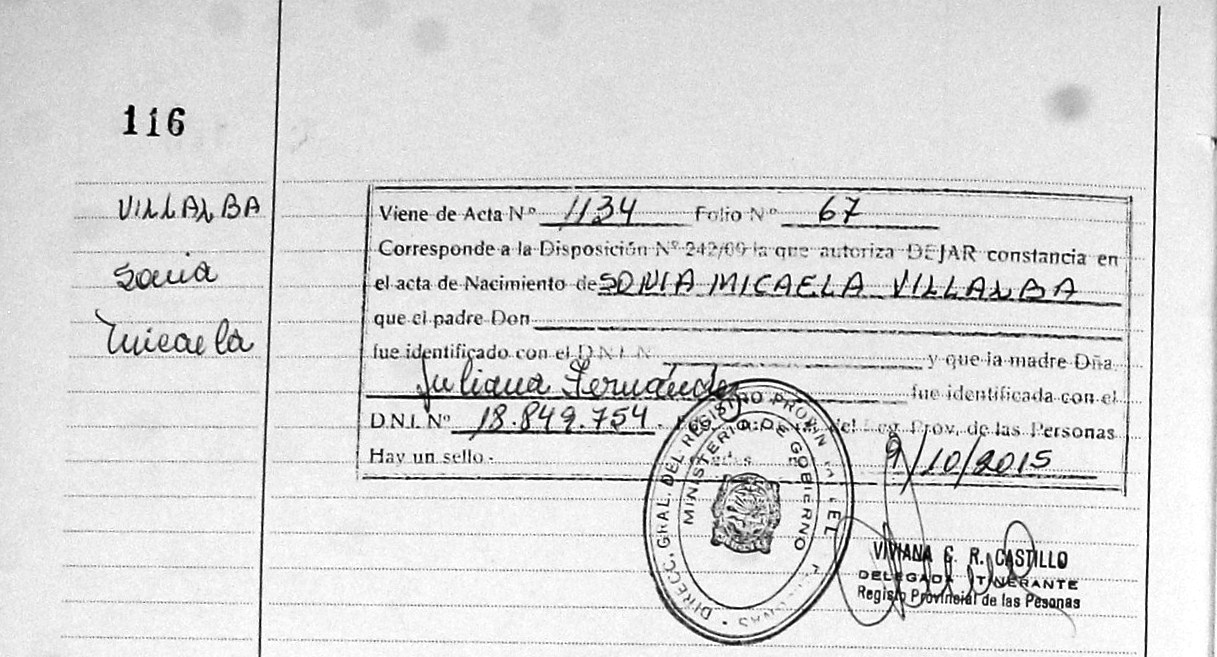 116
VILLALBA
Sonia
Micaela
Viene de Acta Nº 1134 Folio Nº 67
Corresponde a la Disposición Nº 242/09 la que autoriza DEJAR constancia en
el acta de Nacimiento de SONIA MICAELA VILLALBA
que el padre Don
fue identificado con el D.N.I. N y que la madre Dña.
Juliana Fernández fue identificada con el
D.N.I. Nº 18.849.754. del Reg. Prov. de las Personas
Hay un sello.- 9/10/2015
DIRECC. GRAL. DEL REGISTRO PROVIN
MINISTERIO DE GOBIERNO
VIVIANA C. R. CASTILLO
DELEGADA ITINERANTE
Registo Provincial de las Pesonas